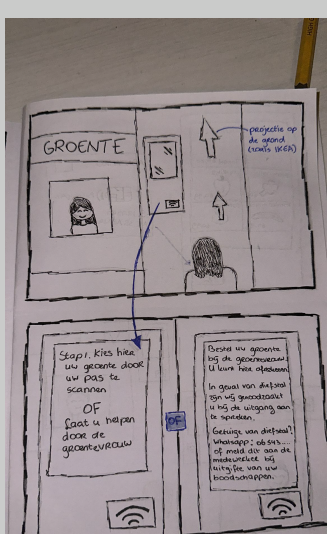 GROENTE
projectie op
de grond
(zoals IKEA)
Stap 1. Kies hier
uw groente door
uw pas te
scannen
OF
Laat u helpen
door de
groenteVROUW
OF
Bestel uw groente
bij de groentevrouw.
U kunt hier afrekenen!
In geval van diefstal
zijn wij genoodzaakt
u bij de uitgang aan
te spreken.
Getuige van diefstal?
Whatsapp: 06 543....
of meld dit aan de
medewerker bij
uitgifte van uw
boodschappen.